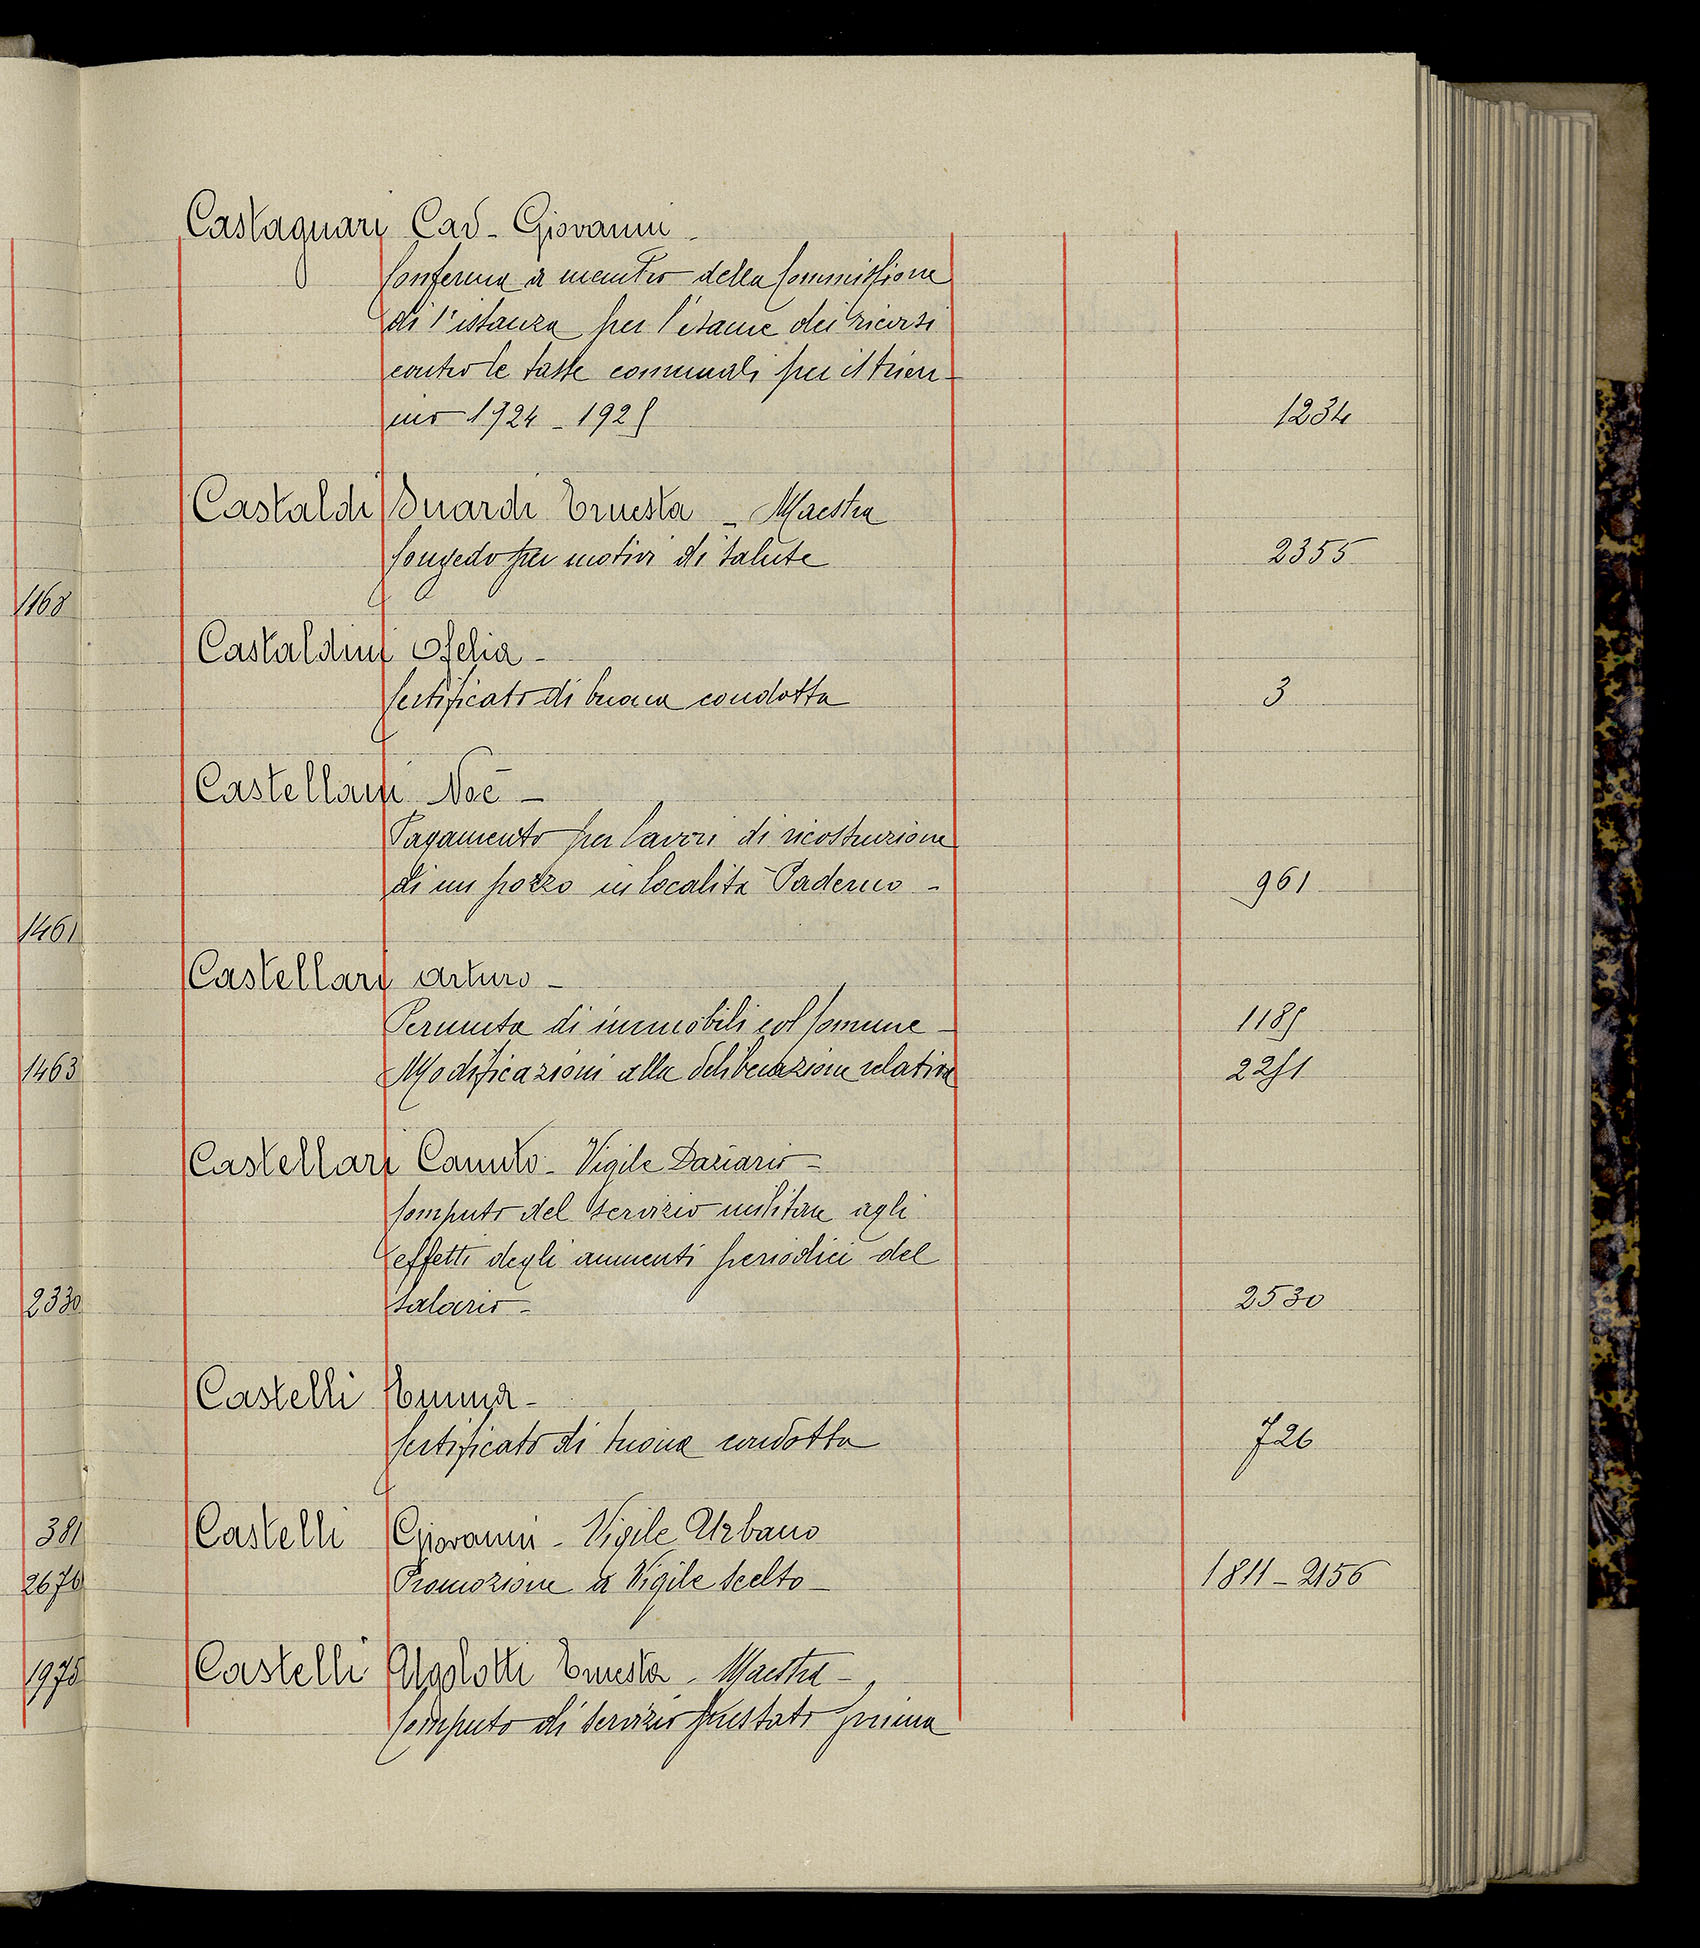 Castagnari Cav - Giovanni -
Conferma a membro della Commissione
di 1ª istanza per l'esame dei ricorsi
contro le tasse comunali per il trien-
nio 1924 - 1925
1234
Castaldi Suardi Ernesta - Maestra
Congedo per motivi di salute
2355
Castaldini Ofelia -
Certificato di buona condotta
3
Castellani Noè -
Pagamento per lavori di ricostruzione
di un pozzo in località Paderno -
961
Castellari Arturo -
Permuta di immobili col Comune -
1185
Modificazioni alla deliberazione relativa
2251
Castellari Canuto - Vigile Daziario -
Computo del servizio militare agli
effetti degli aumenti periodici del
salario -
2530
Castelli Emma -
Certificato di buona condotta
726
Castelli Giovanni - Vigile Urbano
Promozione a Vigile Scelto -
1811 - 2156
Castelli Ugolotti Ernesta - Maestra -
Computo di servizio prestato prima
1168
1461
1463
2330
381
2676
1975